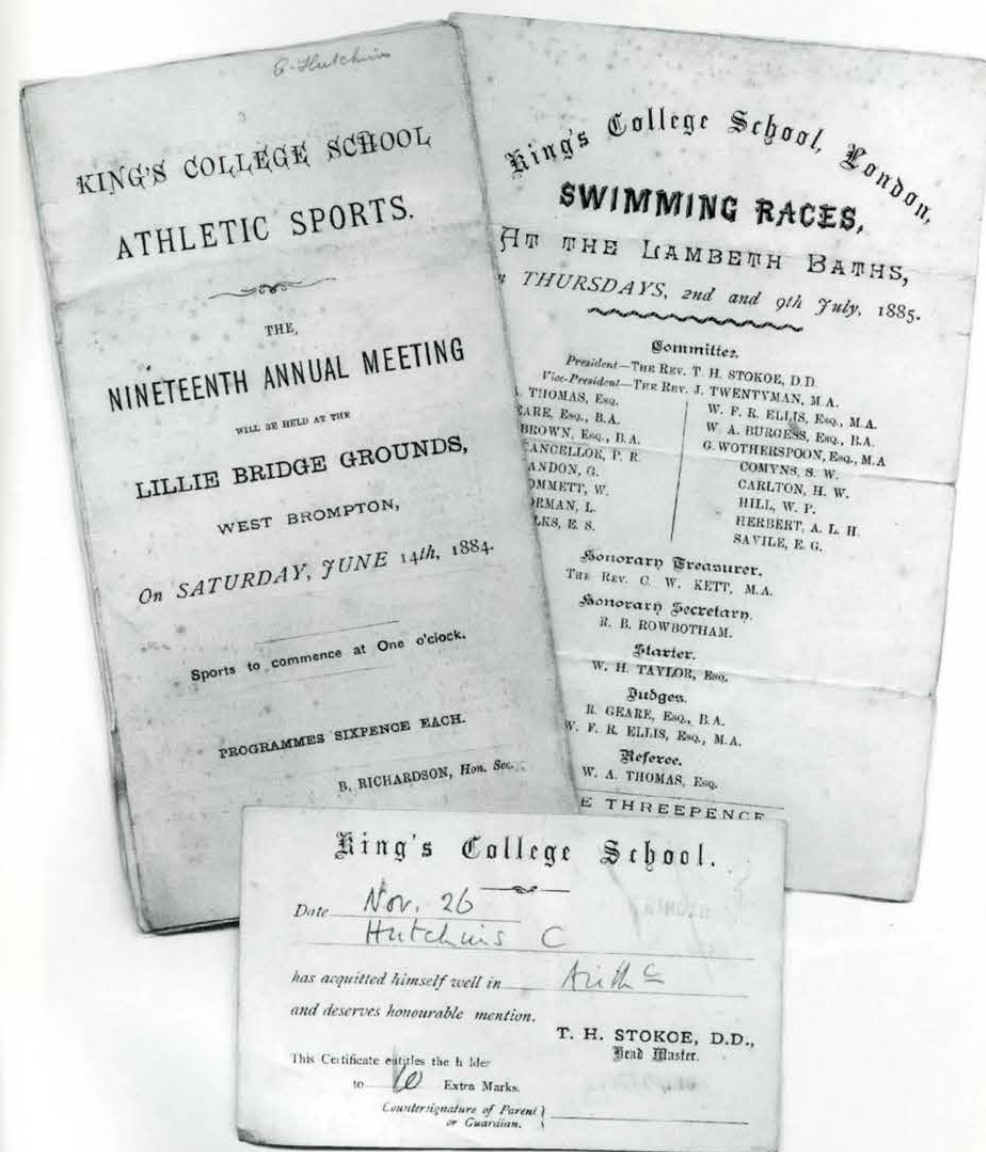 C. Hutchins
KING'S COLLEGE SCHOOL
ATHLETIC SPORTS.
THE
NINETEENTH ANNUAL MEETING
WILL BE HELD AT THE
LILLIE BRIDGE GROUNDS,
WEST BROMPTON,
On SATURDAY, JUNE 14th, 1884.
Sports to commence at One o'clock.
PROGRAMMES SIXPENCE EACH.
B. RICHARDSON, Hon. Sec.
King's College School, London,
SWIMMING RACES,
AT THE LAMBETH BATHS,
THURSDAYS, 2nd and 9th July, 1885.
Committee.
President—THE REV. T. H. STOKOE, D.D.
Vice-President—THE REV. J. TWENTYMAN, M.A.
THOMAS, ESQ.
EARE, ESQ., B.A.
BROWN, ESQ., B.A.
ANCELLOR, P. R.
ANDON, G.
OMMETT, W.
ORMAN, L.
LKS, E. S.
W. F. R. ELLIS, ESQ., M.A.
W. A. BURGESS, ESQ., B.A.
G. WOTHERSPOON, ESQ., M.A
COMYNS, S. W.
CARLTON, H. W.
HILL, W. P.
HERBERT, A. L. H.
SAVILE, E. G.
Honorary Treasurer.
THE REV. C. W. KETT, M.A.
Honorary Secretary.
R. B. ROWBOTHAM.
Starter.
W. H. TAYLOR, ESQ.
Judges.
R. GEARE, ESQ., B.A.
W. F. R. ELLIS, ESQ., M.A.
Referee.
W. A. THOMAS, ESQ.
E THREEPENCE
King's College School.
Date Nov. 26
Hutchins C
has acquitted himself well in Arithc
and deserves honourable mention.
T. H. STOKOE, D.D.,
Head Master.
This Certificate entitles the h lder
to 10 Extra Marks.
Countersignature of Parent
or Guardian.